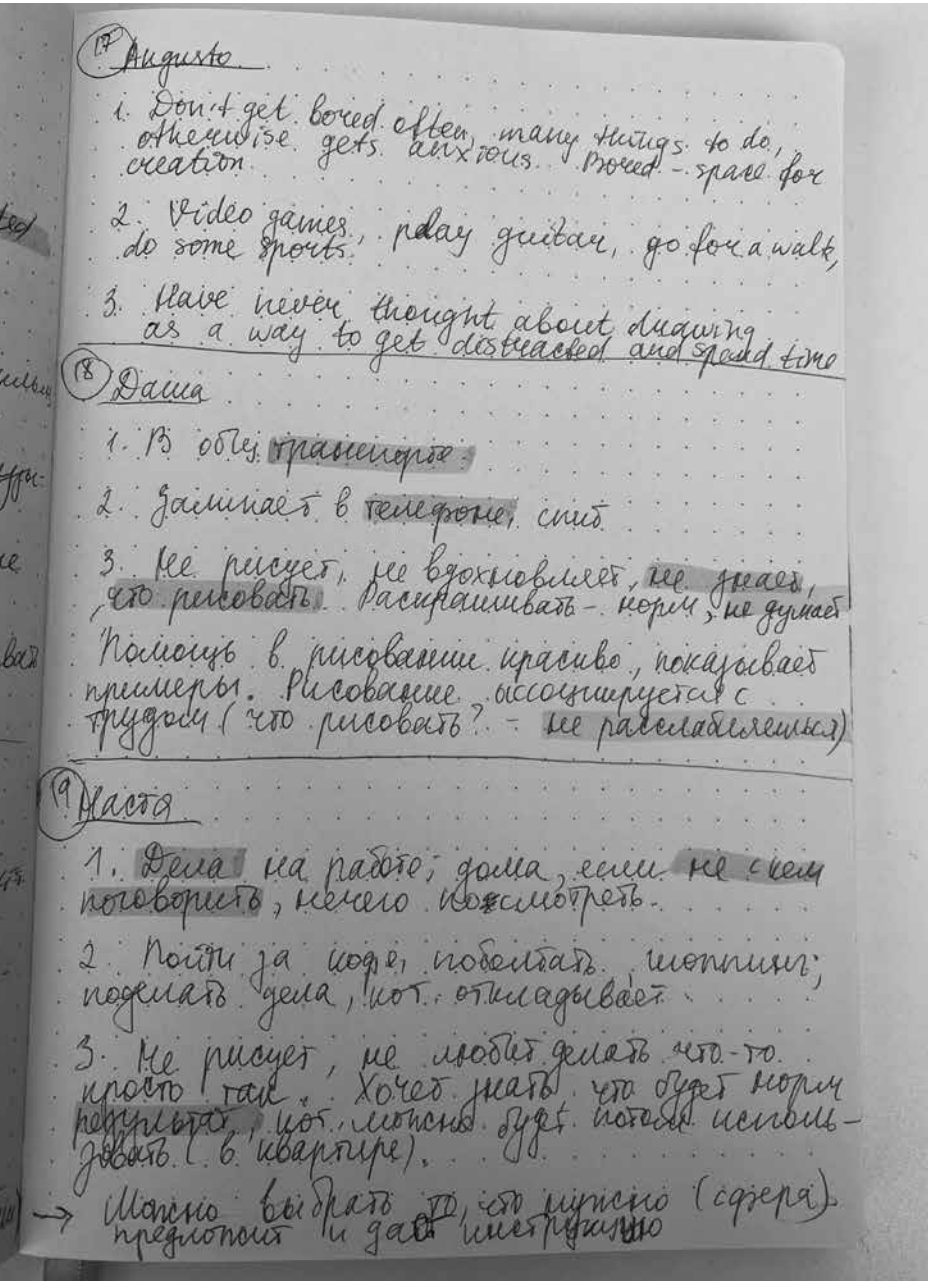 17 Augusto
1. Don't get bored often, many things to do,
otherwise gets anxious. Bored - space for
creation.
2. Video games, play guitar, go for a walk,
do some sports.
3. Have never thought about drawing
as a way to get distracted and spend time
18 Даша
1. В общ. транспорте.
2. Залипает в телефоне, спит
3. Не рисует, не вдохновляет, не знает,
что рисовать. Раскрашивать - норм, не думает
Помощь в рисовании красиво, показывает
примеры. Рисование ассоциируется с
трудом (что рисовать? - не расслабляешься)
19 Настя
1. Дела на работе; дома, если не с кем
поговорить, нечего посмотреть.
2. Пойти за кофе, поболтать, шоппинг;
поделать дела, кот. откладывает
3. Не рисует, не любит делать что-то
просто так. Хочет знать, что будет норм
результат, кот. можно будет потом исполь-
зовать (в квартире).
→ Можно выбрать то, что нужно (сфера)
предложит и даст инструкцию
ted